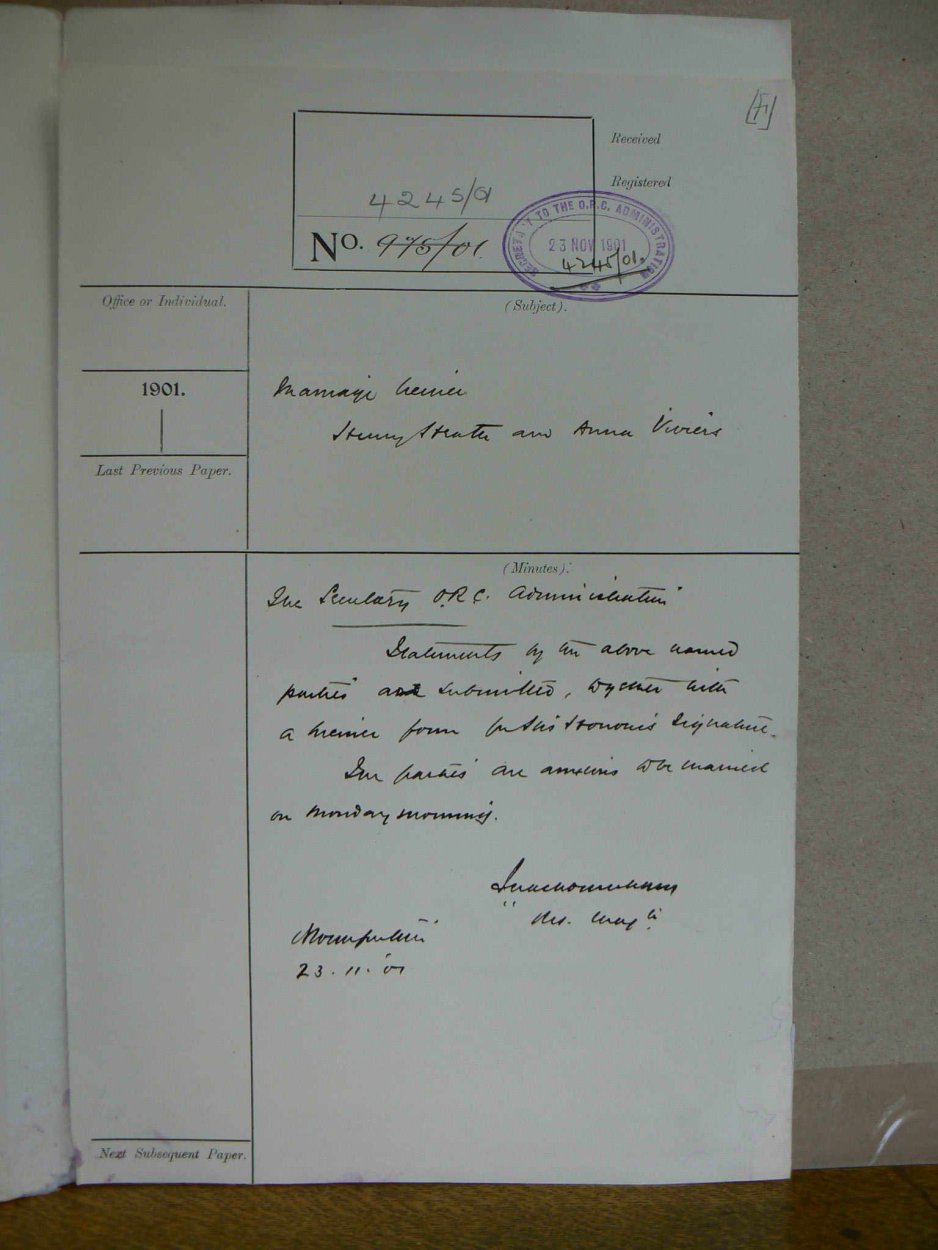 Received
Registered
4245/01
No. 975/01
SECRETARY TO THE O.R.C. ADMINISTRATION
23 NOV 1901
4245/01.
Office or Individual.
(Subject).
1901.
Marriage licence
Henry Heath and Anna Viviers
Last Previous Paper.
(Minutes).
The Secretary O.R.C. Administration
Statements by the above named
parties are submitted, together with
a licence form for His Honour's signature.
The parties are anxious to be married
on Monday morning.
Res. Mag
Bloemfontein
23.11.01
Next Subsequent Paper.